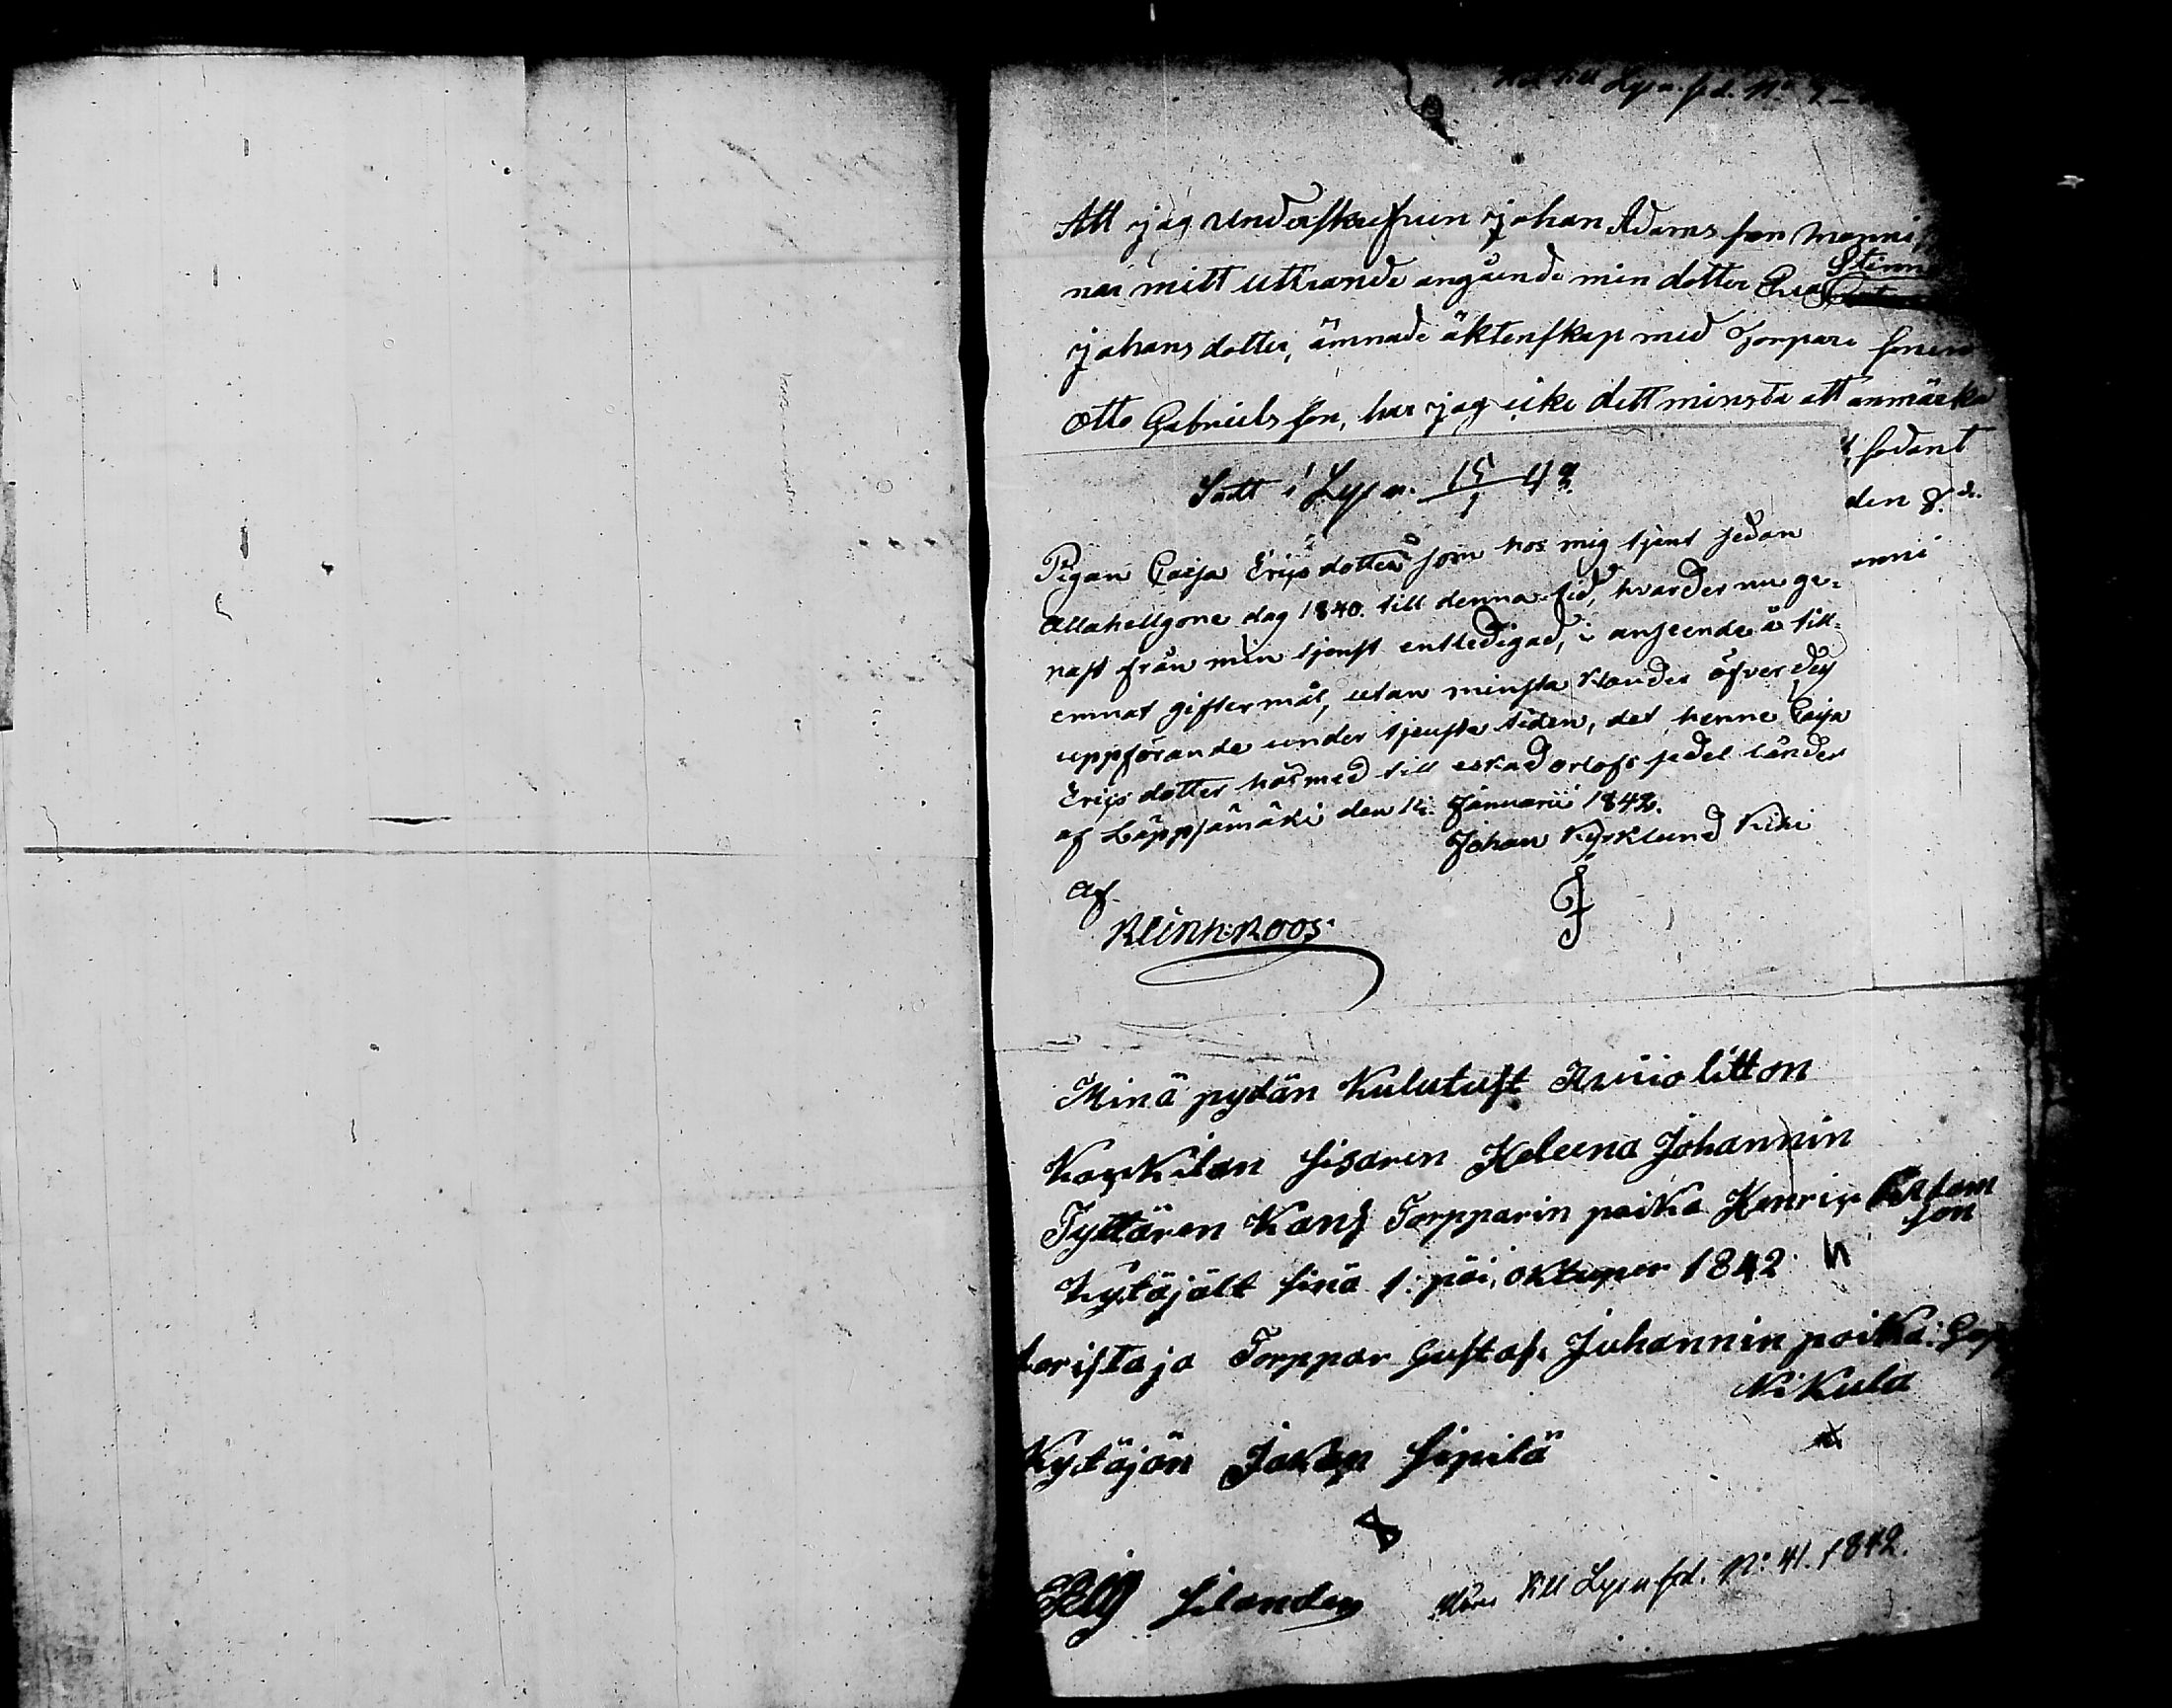 till Lysn. sed. No
Att jag underskrefven johan Adams son manni
när mitt uttrande angående min dotter Eva Stina
johans dotter, ämnade äktenskap med Torpare sonen
Otto Gabriels son, har jag icke dett minsta att anmärka
sådant
den 8de.
anni
Sadt i Lysn. 15/1 42
Pigan Caisa Erics dotter som hos mig tjent sedan
Allahelgone dag 1840. till denna tid, hvarder nu ge-
nast från min tjenst entledigad, i anseende å till-
ernat giftermål, utan minsta klander öfver des
uppförande under tjenste tiden, det henne Caisa
Erics dotter härmed till äskad orlofs sedel länder
af Läppjämäki den 14. Januarii 1842.
Johan Kyrklund Kiki
Af.
Klinkroos.
Minä pydän Kulutust Avioliton
Koskilan sisaren Heleena Johannin
Tyttären Kans Torpparin poika Henric Adam
son
Kytäjält sinä 1: päi, oktuper 1842
toristaja Torppar Gustaf. Juhannin poika:
Nikula
Kytäjän Jakop Sipilä
Silander
till Lysn. sed. No: 41. 1842.